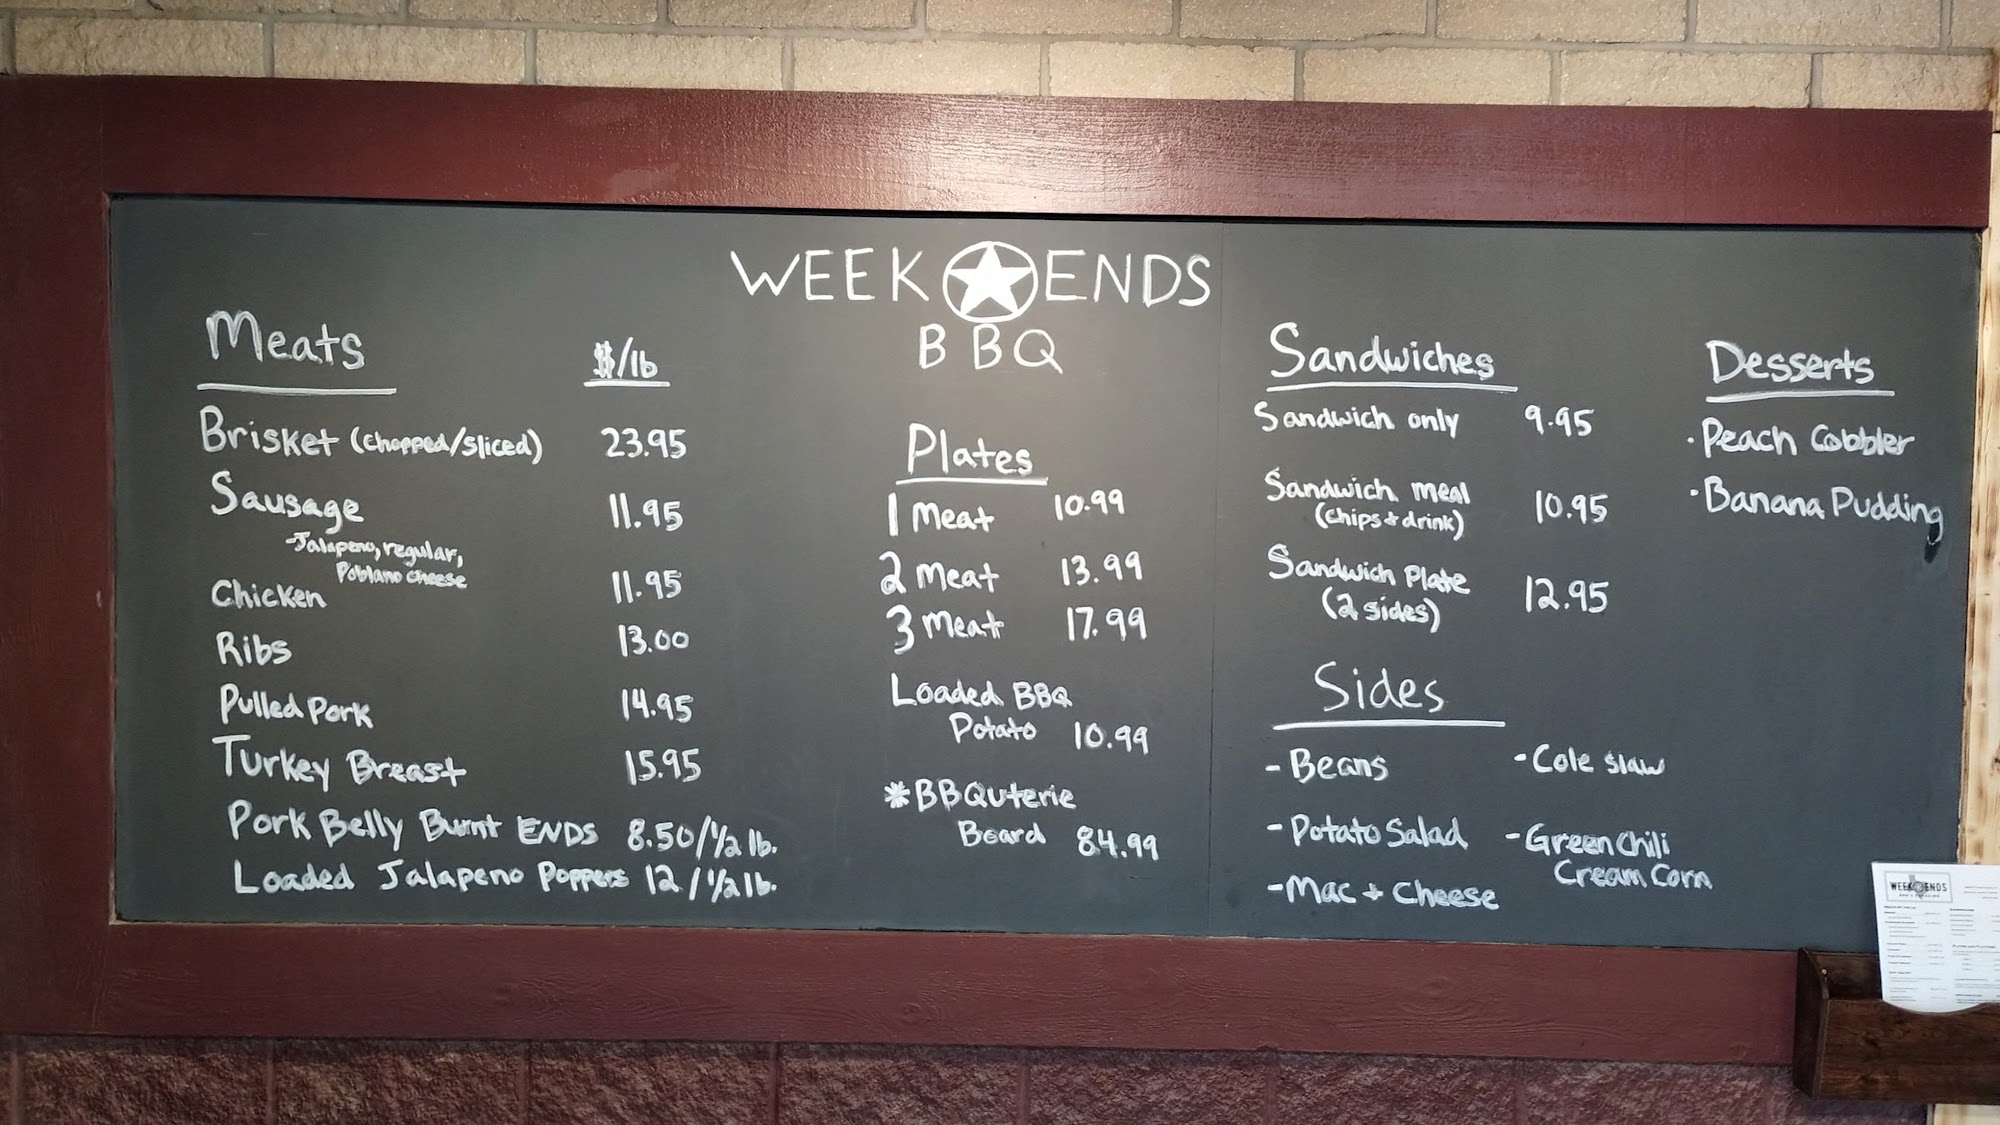 WEEK ENDS
BBQ
Meats $/lb
Brisket (chopped/sliced) 23.95
Sausage 11.95
-Jalapeno, regular,
Poblano cheese
Chicken 11.95
Ribs 13.00
Pulled Pork 14.95
Turkey Breast 15.95
Pork Belly Burnt ENDS 8.50/1/2 lb.
Loaded Jalapeno Poppers 12/1/2 lb.
Plates
1 Meat 10.99
2 Meat 13.99
3 Meat 17.99
Loaded BBQ
Potato 10.99
*BBQuterie
Board 84.99
Sandwiches
Sandwich only 9.95
Sandwich meal 10.95
(chips + drink)
Sandwich Plate 12.95
(2 sides)
Sides
- Beans
- Potato Salad
- Mac + Cheese
- Cole slaw
- Green Chili
Cream Corn
Desserts
· Peach Cobbler
· Banana Pudding
WEEK ENDS